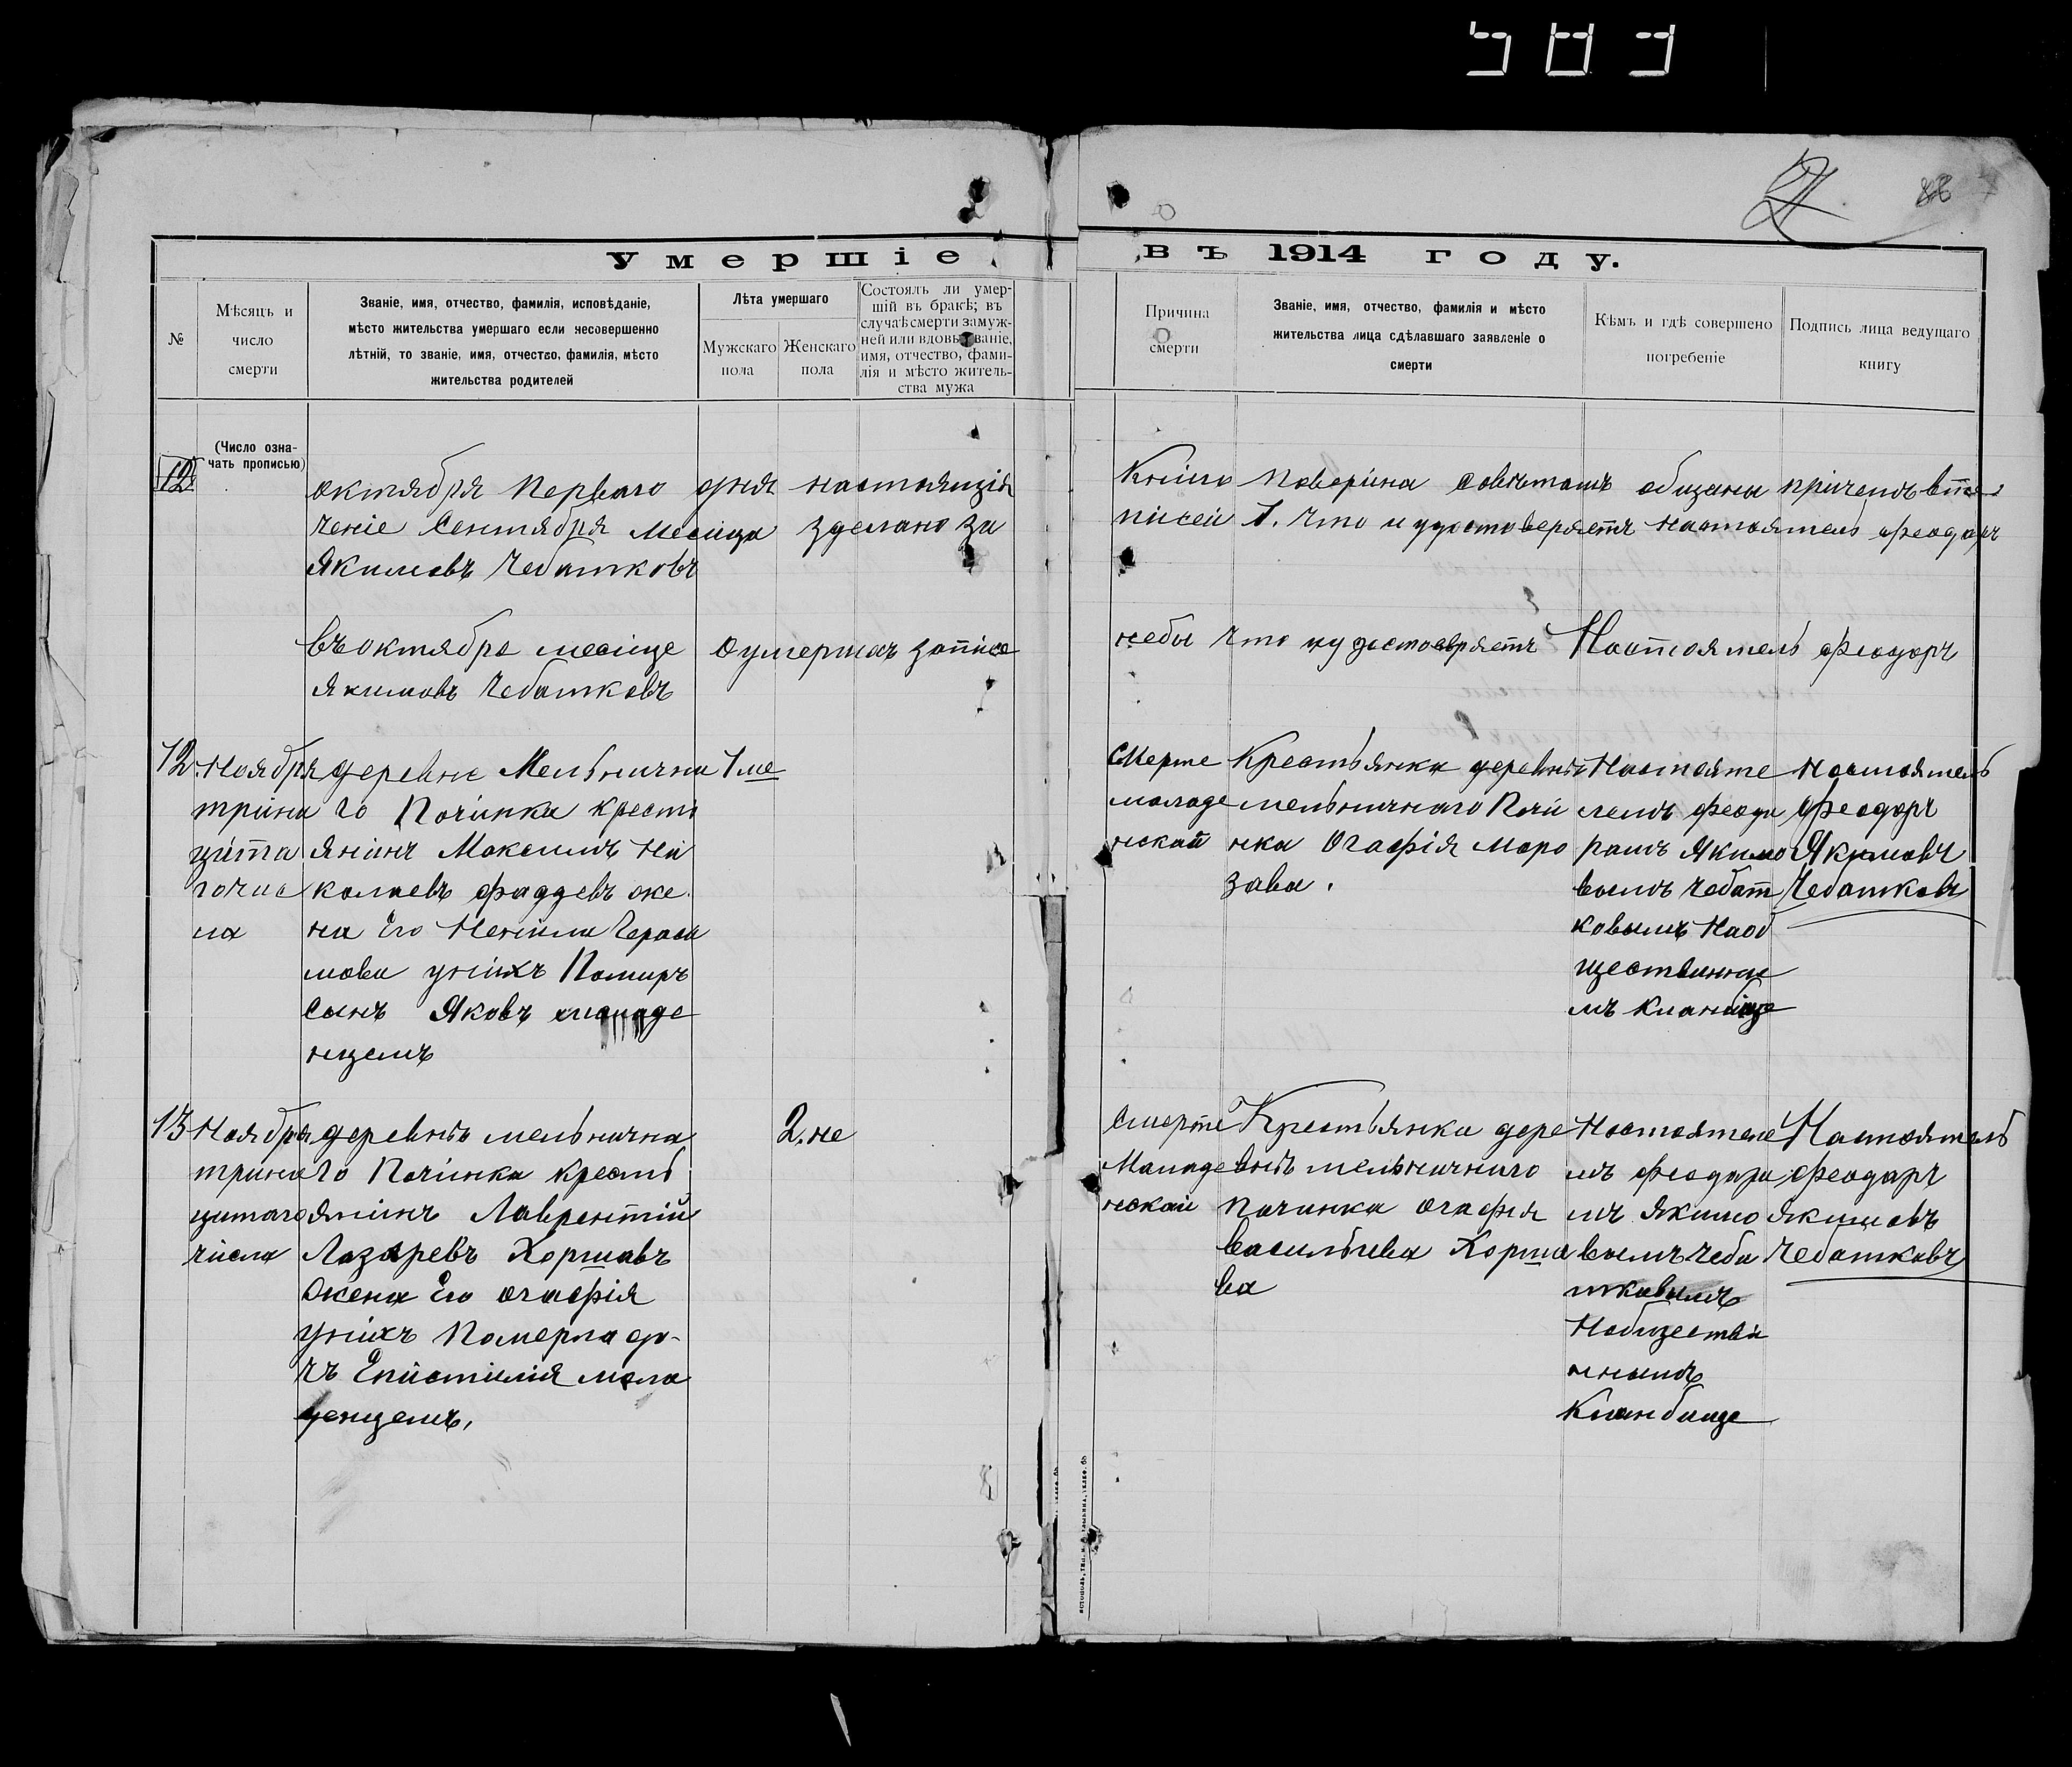 583
27
86
Умершіе въ 1914 году.
№
Мѣсяцъ и число смерти
Званіе, имя, отчество, фамилія, исповѣданіе,
мѣсто жительства умершаго если несовершенно
лѣтній, то званіе, имя, отчество, фамилія, мѣсто
жительства родителей
Лѣта умершаго
Мужскаго пола
Женскаго пола
Состоялъ ли умер-
шій въ бракѣ; въ
случаѣ смерти замуж-
ней или вдовы званіе,
имя, отчество, фами-
лія и мѣсто житель-
ства мужа
Причина смерти
Званіе, имя, отчество, фамилія и мѣсто
жительства лица сдѣлавшаго заявленіе о
смерти
Кѣмъ и гдѣ совершено
погребеніе
Подпись лица ведущаго
книгу
(Число озна-
чать прописью)
12
октября Перваго дня настоящія Книга поверина Советомъ общины причемъ в
ченіе Сентября месяца зделано за писей 1. что и удостоверяетъ настоятель феодоръ
Якимовъ Чебатковъ
въ октябре месяце о умершихъ записе небы что и удостоверяетъ Настоятель феодоръ
Якимовъ Чебатковъ
12
Ноября
трина
цита
гочис
ла
деревне Мельнична
го Починка кресть
янинъ Максимъ Ни
колаевъ фаддевъ же
на Его Ненила Гераси
мова унихъ Помиръ
Сынъ Яковъ младе
нцемъ
1 ме
Смерте
моладе
нскай
Крестьянка деревне
мельничнаго Почи
нка Огафія моро
зава.
Настояте
лемъ феодо
рамъ Якимо
вымъ Чебат
ковымъ Наоб
щественно
мъ кланбище
Настоятель
феодоръ
Якимовъ
Чебатковъ
13
Ноября
трина
цатаго
числа
деревнѣ мельнична
го Починка кресть
янинъ Лаврентій
Лазаревъ Хоршавъ
Жена Его огафія
унихъ Померла до-
чъ Епистимія мола
денцемъ,
2. не
Смерте
Маладе
нскай
Крестьянка дере
внѣ мельничнаго
починка огафия
васильива Хорша
ва
Настоятеле
мъ феодара
мъ Якимо
вымъ Чеба
тковымъ
Наобществи
ннымъ
Кланбище
Настоятель
феодаръ
Якимовъ
Чебатковъ